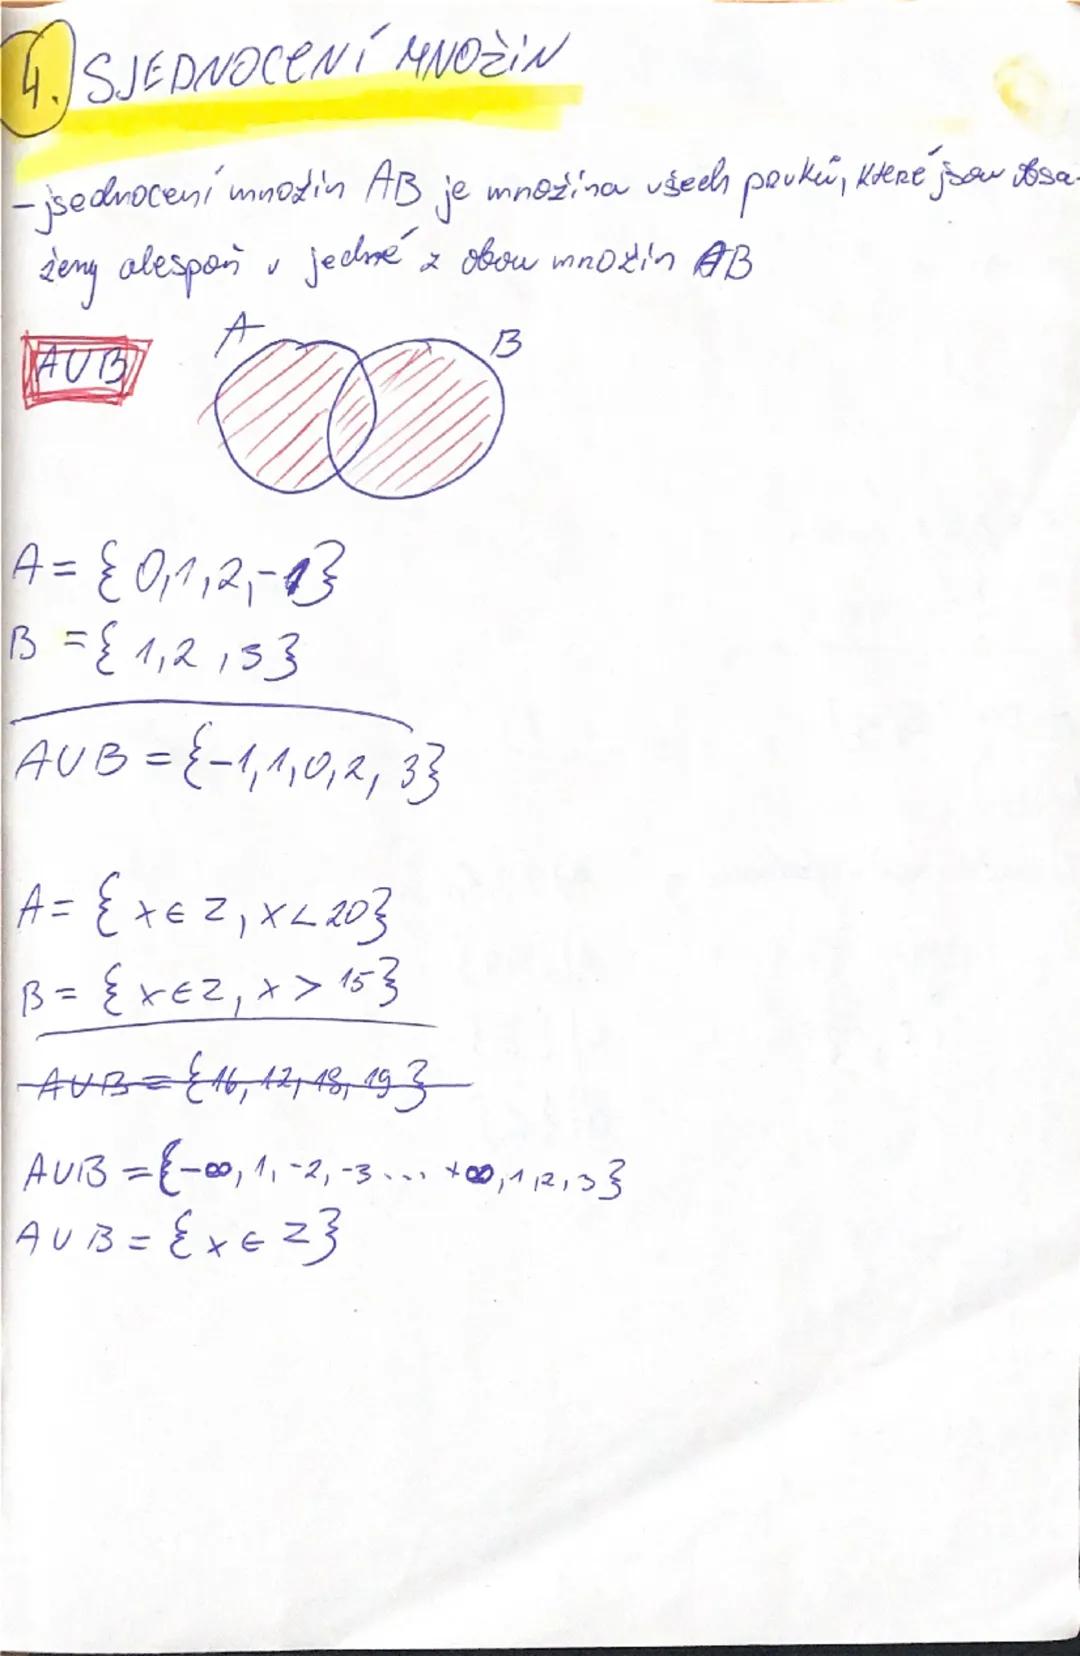 4. SJEDNOCENÍ MNOŽIN
- jsednocení množin AB je množina všech prvků, které jsou obsa-
ženy alespoň v jedné z obou množin AB
AUB
A
B
A = {0,1,2,-1}
B = {1,2,3}
AUB = {-1,1,0,2,3}
A = {x∈Z, x<20}
B = {x∈Z, x > 15}
AUB = {16, 17, 18, 19}
AUB = {-∞, 1, -2, -3... +∞, 1, 2, 3}
AUB = {x∈Z}